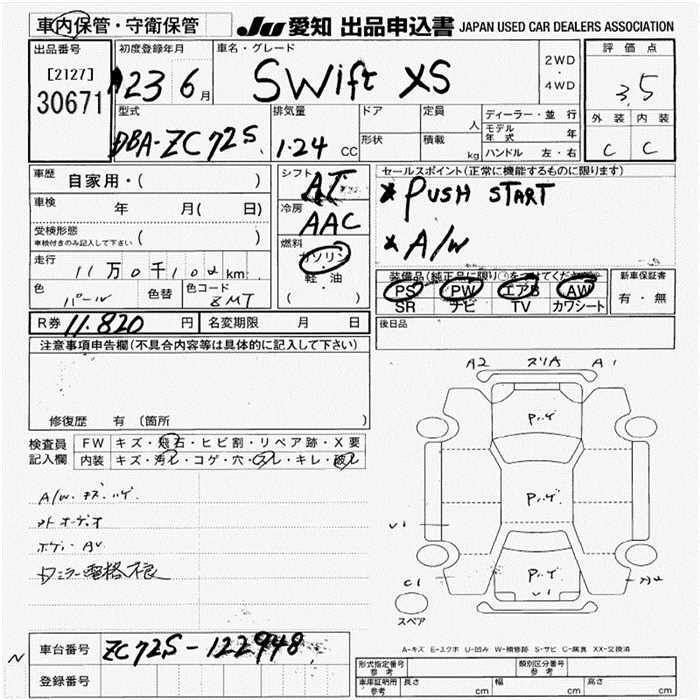 車内保管・守衛保管
JU 愛知 出品申込書 JAPAN USED CAR DEALERS ASSOCIATION
出品番号
[2127]
30671
初度登録年月
23 6月
車名・グレード
SWift XS
2WD
・
4WD
評価点
3.5
外装 内装
C C
型式
DBA-ZC72S
排気量
1.24 CC
ドア
形状
定員
人
積載
kg
ディーラー・並行
モデル年式 年
ハンドル 左・右
車歴
自家用・( )
車検
年 月( 日)
受検形態
車検付きのみ記入して下さい ( )
走行
11万0千102km
色
パール
色替
色コード
ZMT
シフト
AT
冷房
AAC
燃料
ガソリン
軽・油
( )
セールスポイント(正常に機能するものに限ります)
* PUSH START
* A/W
装備品(純正品に限り○をつけてください)
PS PW エアB AW
SR ナビ TV カワシート
新車保証書
有・無
R券 11.820 円
名変期限 月 日
後日品
注意事項申告欄(不具合内容等は具体的に記入して下さい)
修復歴 有 (箇所
検査員
記入欄
FW キズ・飛石・ヒビ割・リペア跡・X要
内装 キズ・汚れ・コゲ・穴・スレ・キレ・破れ
A/W キズ ハゲ
オーディオ
ミラー電格不良
A2 スリA A1
P.ハゲ
P.ハゲ
P.ハゲ
U1
U1
C1
A2
スペア
A-キズ E-エクボ U-凹み W-補修跡 S-サビ C-腐食 XX-交換済
車台番号
ZC72S-122948
登録番号
N
形式指定番号
参考
類別区分番号
参考
車庫証明用
参考
長さ cm
幅 cm
高さ cm